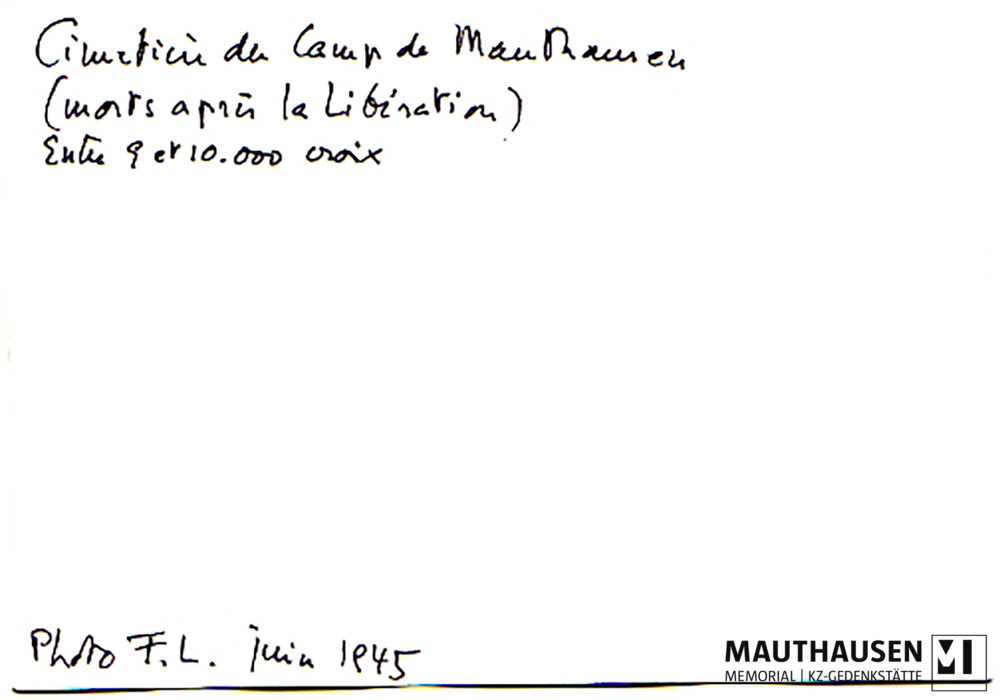 Cimetière du Camp de Mauthausen
(morts après la Libération)
Entre 9 et 10.000 croix
Photo F.L. juin 1945
MAUTHAUSEN
MEMORIAL | KZ-GEDENKSTÄTTE